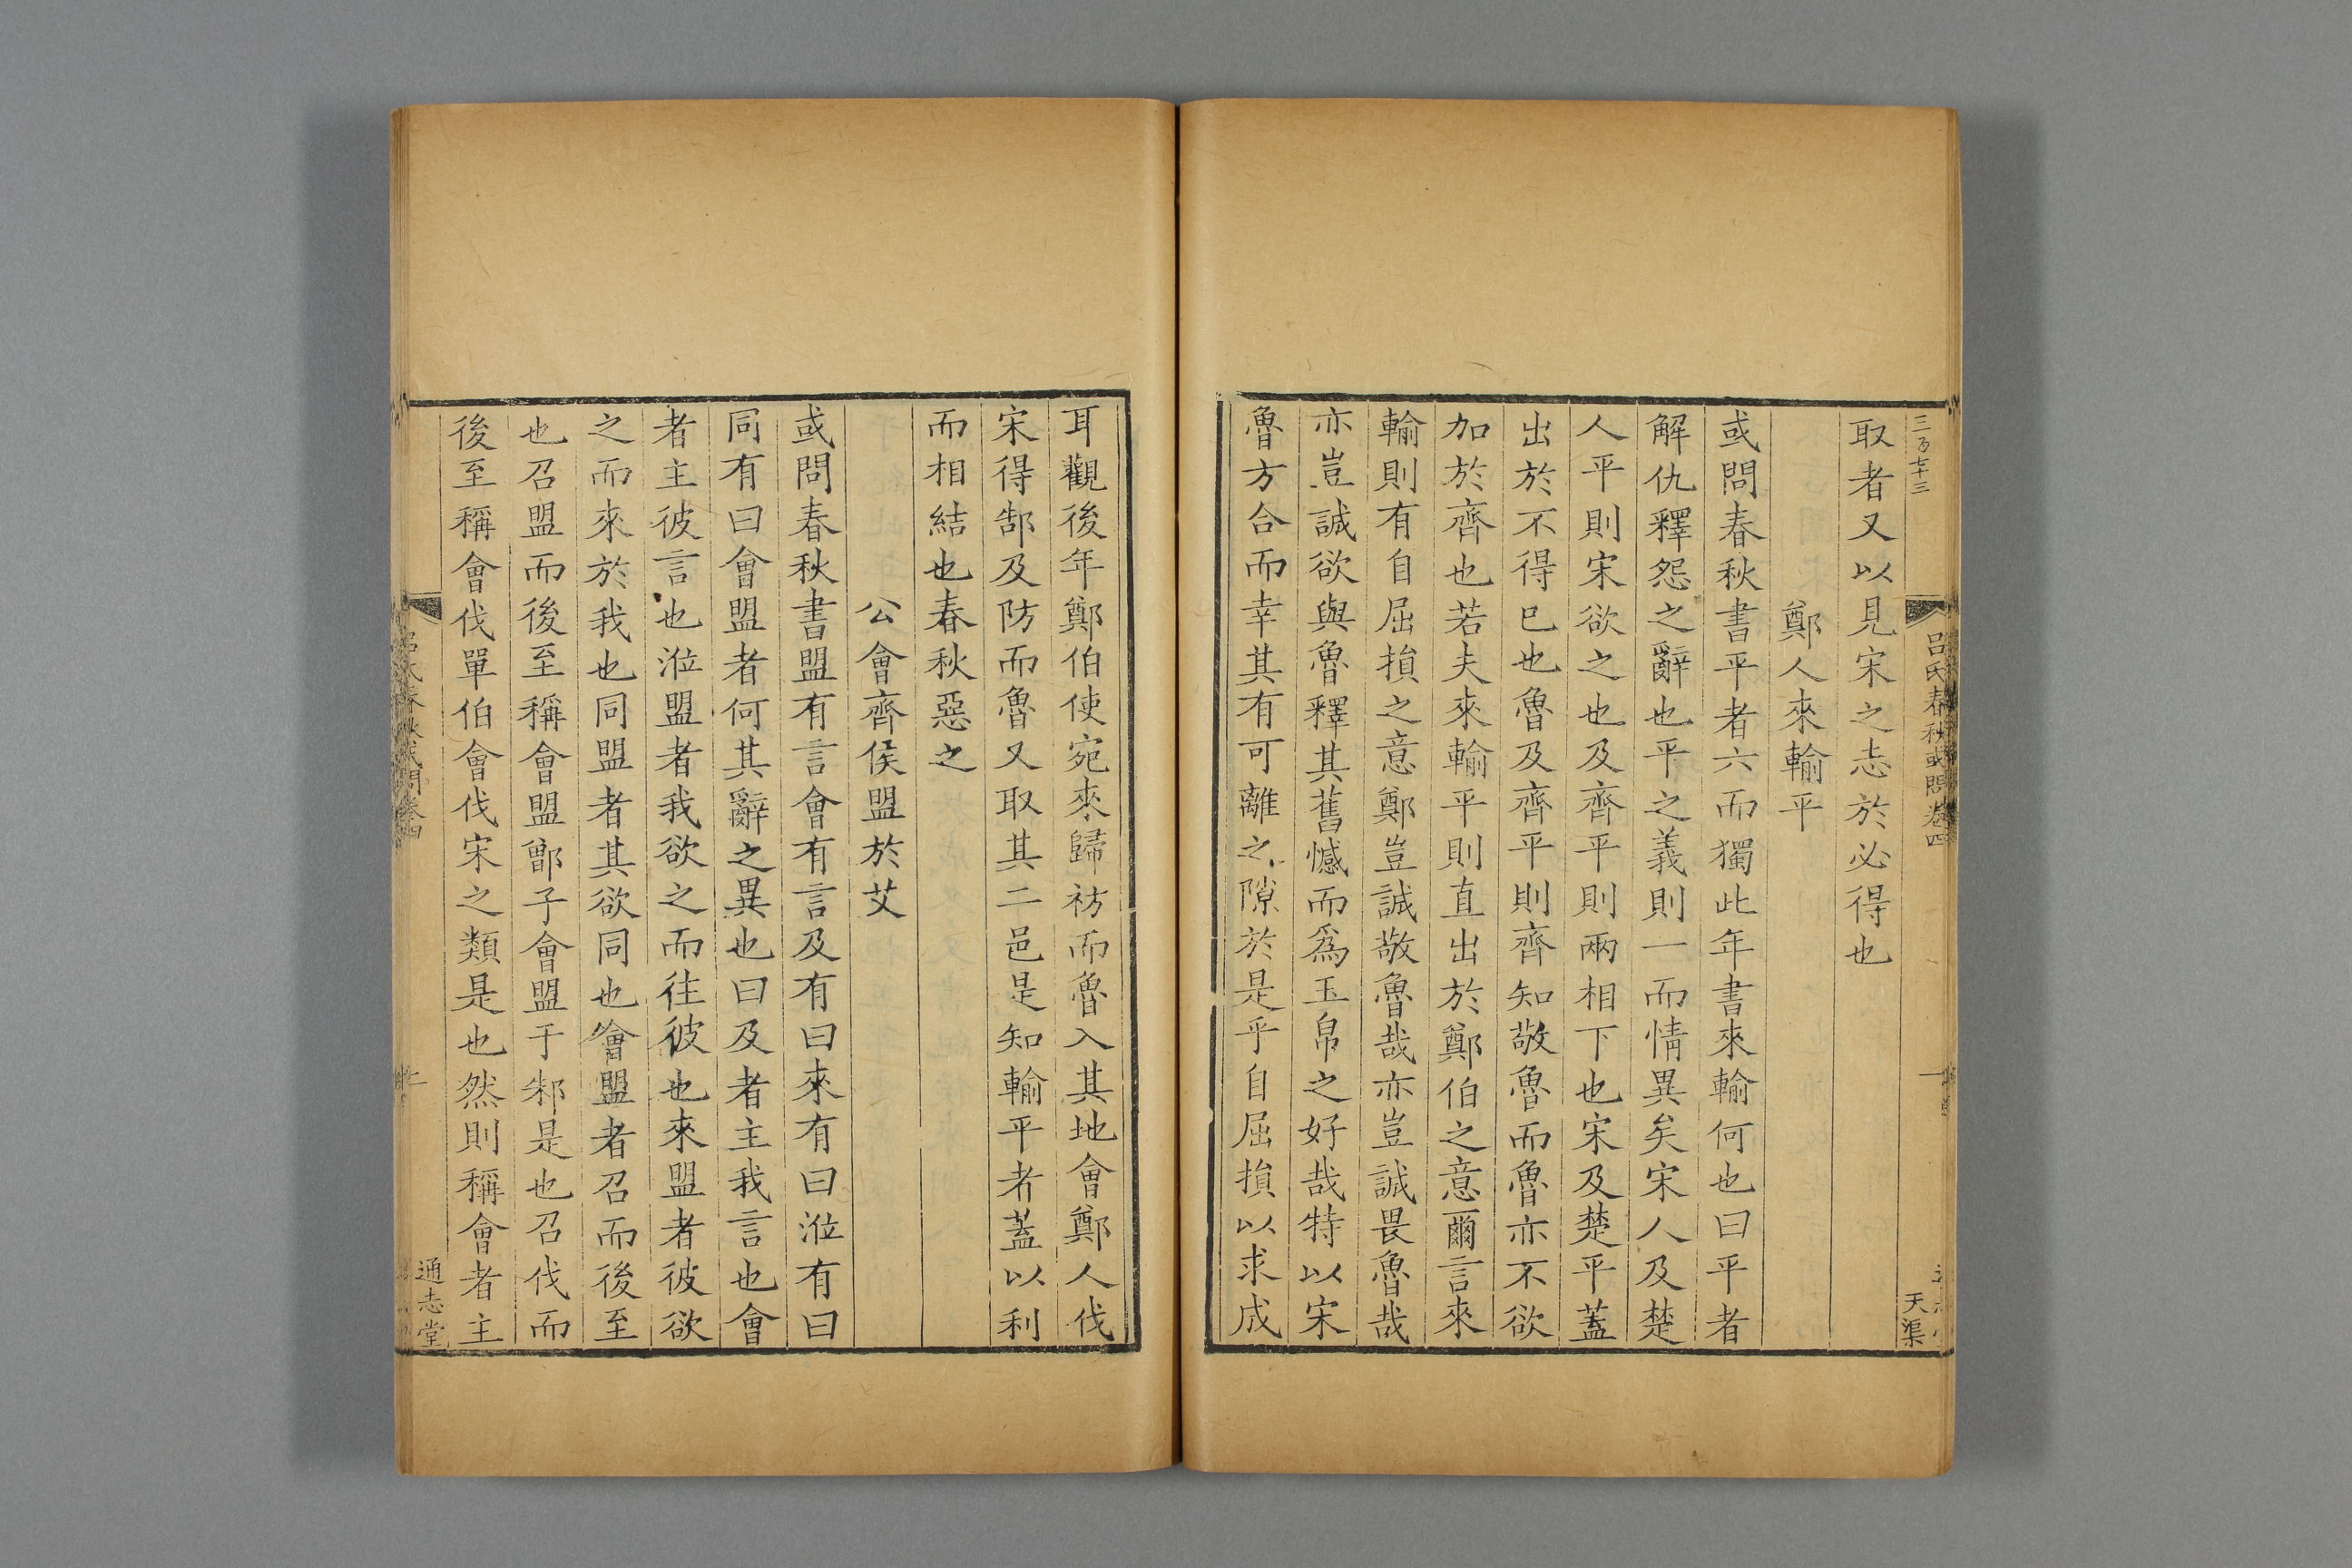 三百七十三
呂氏春秋或問卷四
一
天渠
取者又以見宋之志於必得也
鄭人來輸平
或問春秋書平者六而獨此年書來輸何也曰平者
解仇釋怨之辭也平之義則一而情異矣宋人及楚
人平則宋欲之也及齊平則兩相下也宋及楚平蓋
出於不得已也魯及齊平則齊知敬魯而魯亦不欲
加於齊也若夫來輸平則直出於鄭伯之意爾言來
輸則有自屈損之意鄭豈誠敬魯哉亦豈誠畏魯哉
亦豈誠欲與魯釋其舊憾而爲玉帛之好哉特以宋
魯方合而幸其有可離之隙於是乎自屈損以求成
耳觀後年鄭伯使宛來歸祊而魯入其地會鄭人伐
宋得郜及防而魯又取其二邑是知輸平者蓋以利
而相結也春秋惡之
公會齊侯盟於艾
或問春秋書盟有言會有言及有曰來有曰涖有曰
同有曰會盟者何其辭之異也曰及者主我言也會
者主彼言也涖盟者我欲之而往彼也來盟者彼欲
之而來於我也同盟者其欲同也會盟者召而後至
也召盟而後至稱會盟鄫子會盟于邾是也召伐而
後至稱會伐單伯會伐宋之類是也然則稱會者主
呂氏春秋或問卷四
二
通志堂